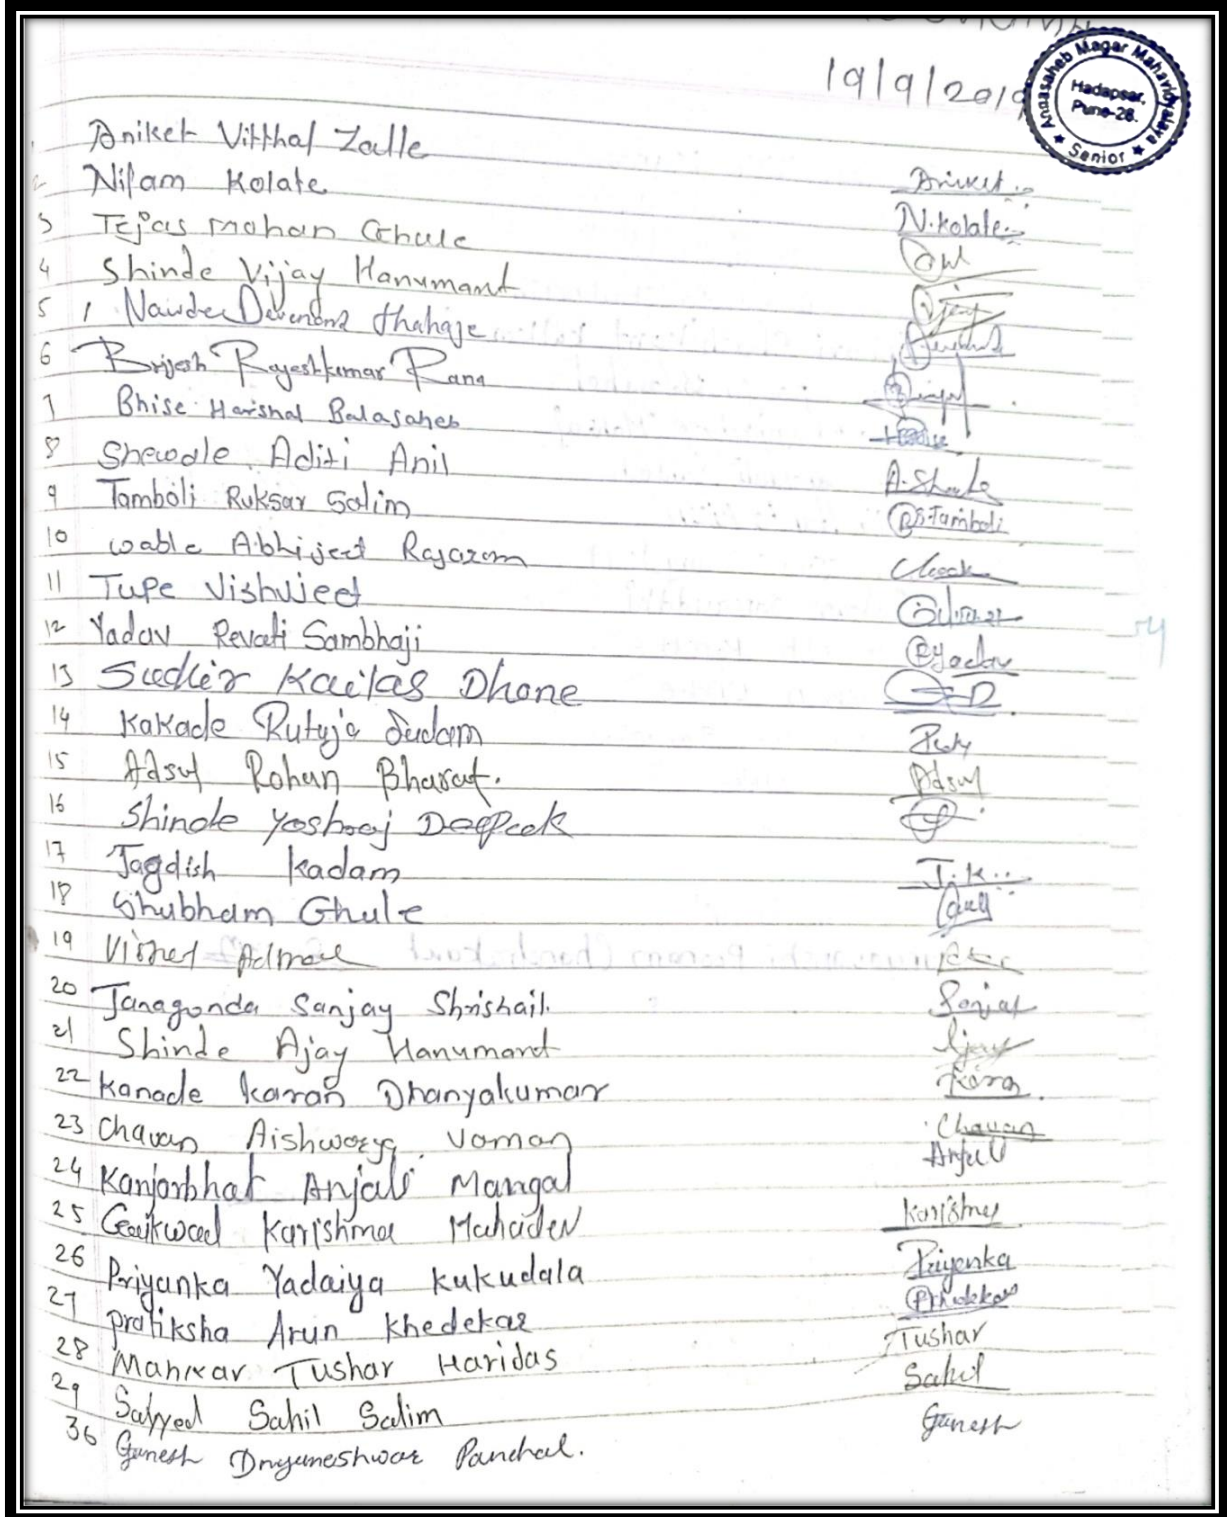 19/9/2019
Annasaheb Magar Mahavidyalaya
Hadapsar,
Pune-28.
★ Senior ★
Aniket Vitthal Zalle
2 Nilam Kolate Aniket
3 Tejas Mohan Ghule N.Kolate
4 Shinde Vijay Hanumant
5 Vijay
6 Brijesh Rajeshkumar Rana
7 Bhise Harshal Balasaheb
8 Shewale Aditi Anil
9 Tamboli Ruksar Salim R.S.Tamboli
10 Wable Abhijeet Rajaram
11 Tupe Vishvjeet
12 Yadav Revati Sambhaji R.Yadav
13 Sudhir Kailas Dhone
14 Kakade Rutuja Sudam
15 Adsul Rohan Bharat. Adsul
16 Shinde Yashraj Deepak
17 Jagdish Kadam J.K..
18 Shubham Ghule
19
20 Janagonda Sanjay Shrishail. Sanjay
21 Shinde Ajay Hanumant Ajay
22 Kanade Karan Dhanyakumar Karan
23 Chavan Aishwarya Vaman Chavan
24 Kanjarbhat Anjali Mangal Anjali
25 Gaikwad Karishma Mahadev Karishma
26 Priyanka Yadaiya Kukudala Priyanka
27 Pratiksha Arun Khedekar
28 Mahnar Tushar Haridas Tushar
29 Sayyed Sahil Salim Sahil
30 Ganesh Dnyaneshwar Panchal. Ganesh